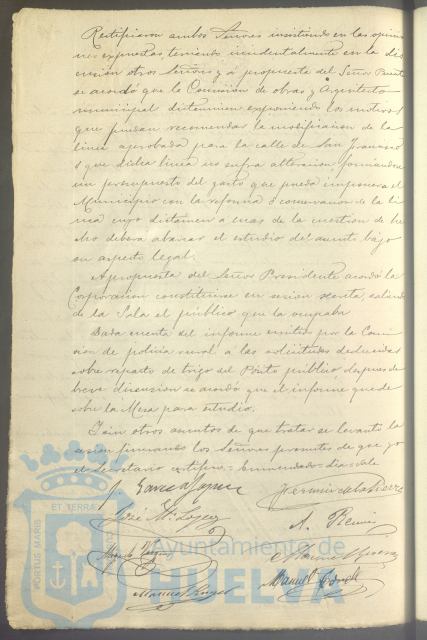 Rectificaron ambos Señores insistiendo en las opinio
nes expuestas, terciando incidentalmente en la dis
cusión otros Señores y á propuesta del Señor
se acordó que la Comisión de obras y Arquitecto
municipal dictaminen exponiendo los motivos
que puedan recomendar la modificación de la
línea aprobada para la calle de San Francisco
ó que dicha línea no sufra alteración, formándose
un presupuesto del gasto que pueda imponerse el
Municipio con la reforma ó conservación de la lí
nea cuyo dictamen a mas de la cuestión de he
cho deberá abarcar el estudio del asunto bajo
su aspecto legal.
A propuesta del Señor Presidente acordó la
Corporación constituirse en sesión secreta, saliendo
de la Sala el público que la ocupaba
Dada cuenta del informe emitido por la Comi
sión de policía rural a las solicitudes deducidas
sobre reparto de trigo del Pósito público despues de
breve discusión se acordó que el informe quede
sobre la Mesa para estudio.
Y sin otros asuntos de que tratar se levantó la
sesión firmando los Señores presentes de que yo
el Secretario certifico = Enmendado =
José Mª Lopez
A.
Manuel
Manuel
PORTUS MARIS ET TERRÆ
Ayuntamiento de
HUELVA